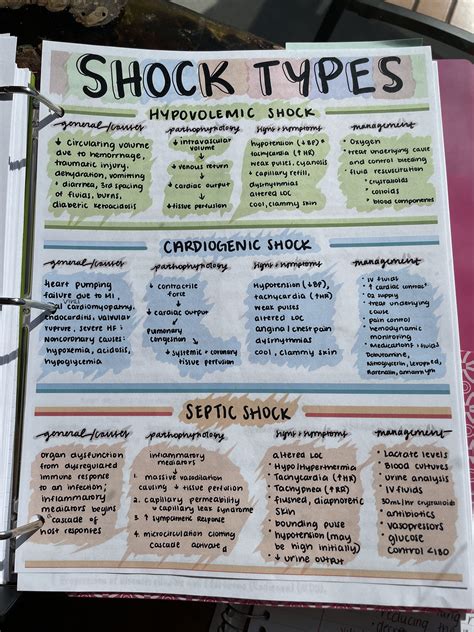 SHOCK TYPES
HYPOVOLEMIC SHOCK
general/causes
↓ circulating volume
due to hemorrhage,
traumatic injury,
dehydration, vomitting
+ diarrhea, 3rd spacing
of fluids, burns,
diabetic ketoacidosis
pathophysiology
↓ intravascular
volume
↓ venous return
↓ cardiac output
↓ tissue perfusion
signs + symptoms
hypotension (↓BP)
tachycardia (↑HR)
weak pulses, cyanosis
↓ capillary refill,
dysrhythmias
altered LOC
cool, clammy skin
management
• Oxygen
• treat underlying cause
and control bleeding
fluid resuscitation
• crystalloids
• colloids
• blood components
CARDIOGENIC SHOCK
general/causes
Heart pumping
failure due to MI,
viral cardiomyopathy,
endocarditis, valvular
rupture, severe HF;
Noncoronary causes:
hypoxemia, acidosis,
hypoglycemia
pathophysiology
↓ contractile
force
↓ cardiac output
Pulmonary
congestion
↓ systemic + coronary
tissue perfusion
signs + symptoms
Hypotension (↓BP),
tachycardia (↑HR)
weak pulses
altered LOC
angina / chest pain
dysrhythmias
cool, clammy skin
management
• IV fluids
• ↑ cardiac contract
• O2 supply
• treat underlying
cause
• pain control
• hemodynamic
monitoring
• Medications + fluids
Dobutamine,
Nitroglycerin,
SEPTIC SHOCK
general/causes
organ dysfunction
from dysregulated
immune response
to an infection;
inflammatory
mediators begins
cascade of
host responses
pathophysiology
inflammatory
mediators →
1. massive vasodilation
causing ↓ tissue perfusion
2. capillary permeability
↳ capillary leak syndrome
3. ↑ sympathetic response
4. microcirculation clotting
cascade activated
signs + symptoms
altered LOC
Hypo/Hyperthermia
Tachycardia (↑HR)
Tachypnea (↑RR)
flushed, diaphoretic
skin
bounding pulse
hypotension (may
be high initially)
↓ urine output
management
• Lactate levels
• Blood cultures
• Urine analysis
• IV fluids
30ml/hr crystalloids
• antibiotics
• vasopressors
glucose
control <180